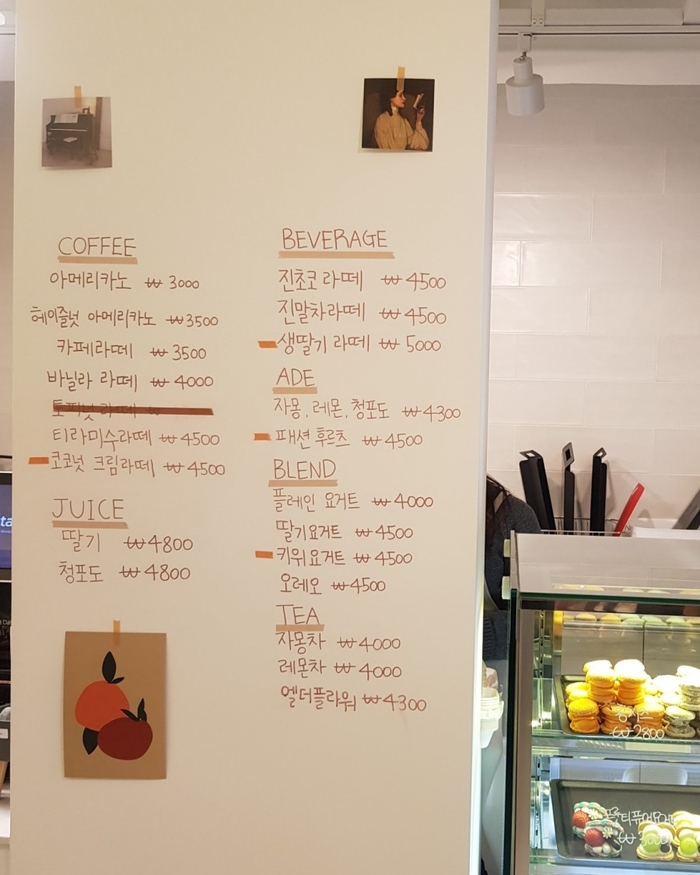 COFFEE
아메리카노 ₩ 3000
헤이즐넛 아메리카노 ₩3500
카페라떼 ₩ 3500
바닐라 라떼 ₩ 4000
티라미수라떼 ₩ 4500
코코넛 크림라떼 ₩ 4500
JUICE
딸기 ₩4800
청포도 ₩4800
BEVERAGE
진초코 라떼 ₩ 4500
진말차라떼 ₩ 4500
생딸기 라떼 ₩ 5000
ADE
자몽, 레몬, 청포도 ₩ 4300
패션후르츠 ₩ 4500
BLEND
플레인 요거트 ₩ 4000
딸기요거트 ₩ 4500
키위요거트 ₩ 4500
오레오 ₩ 4500
TEA
자몽차 ₩ 4000
레몬차 ₩ 4000
엘더플라워 ₩ 4300
₩ 2800